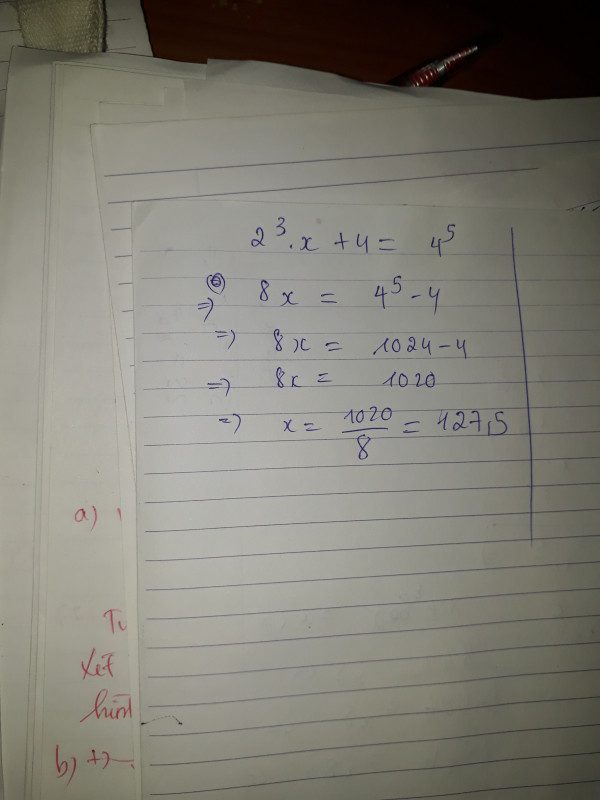 2³.x + 4 = 4⁵
=> 8x = 4⁵ - 4
=> 8x = 1024 - 4
=> 8x = 1020
=> x = 1020/8 = 427,5
a)
xét
hình
b)